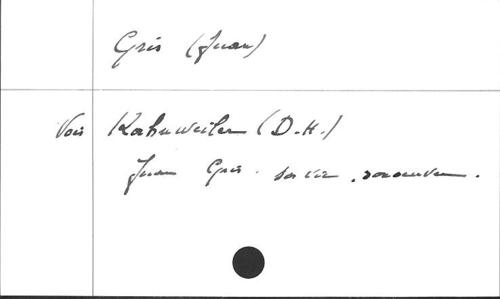 Gris (Juan)
Voir Kahnweiler (D.-H.)
Juan Gris. sa vie, son oeuvre.